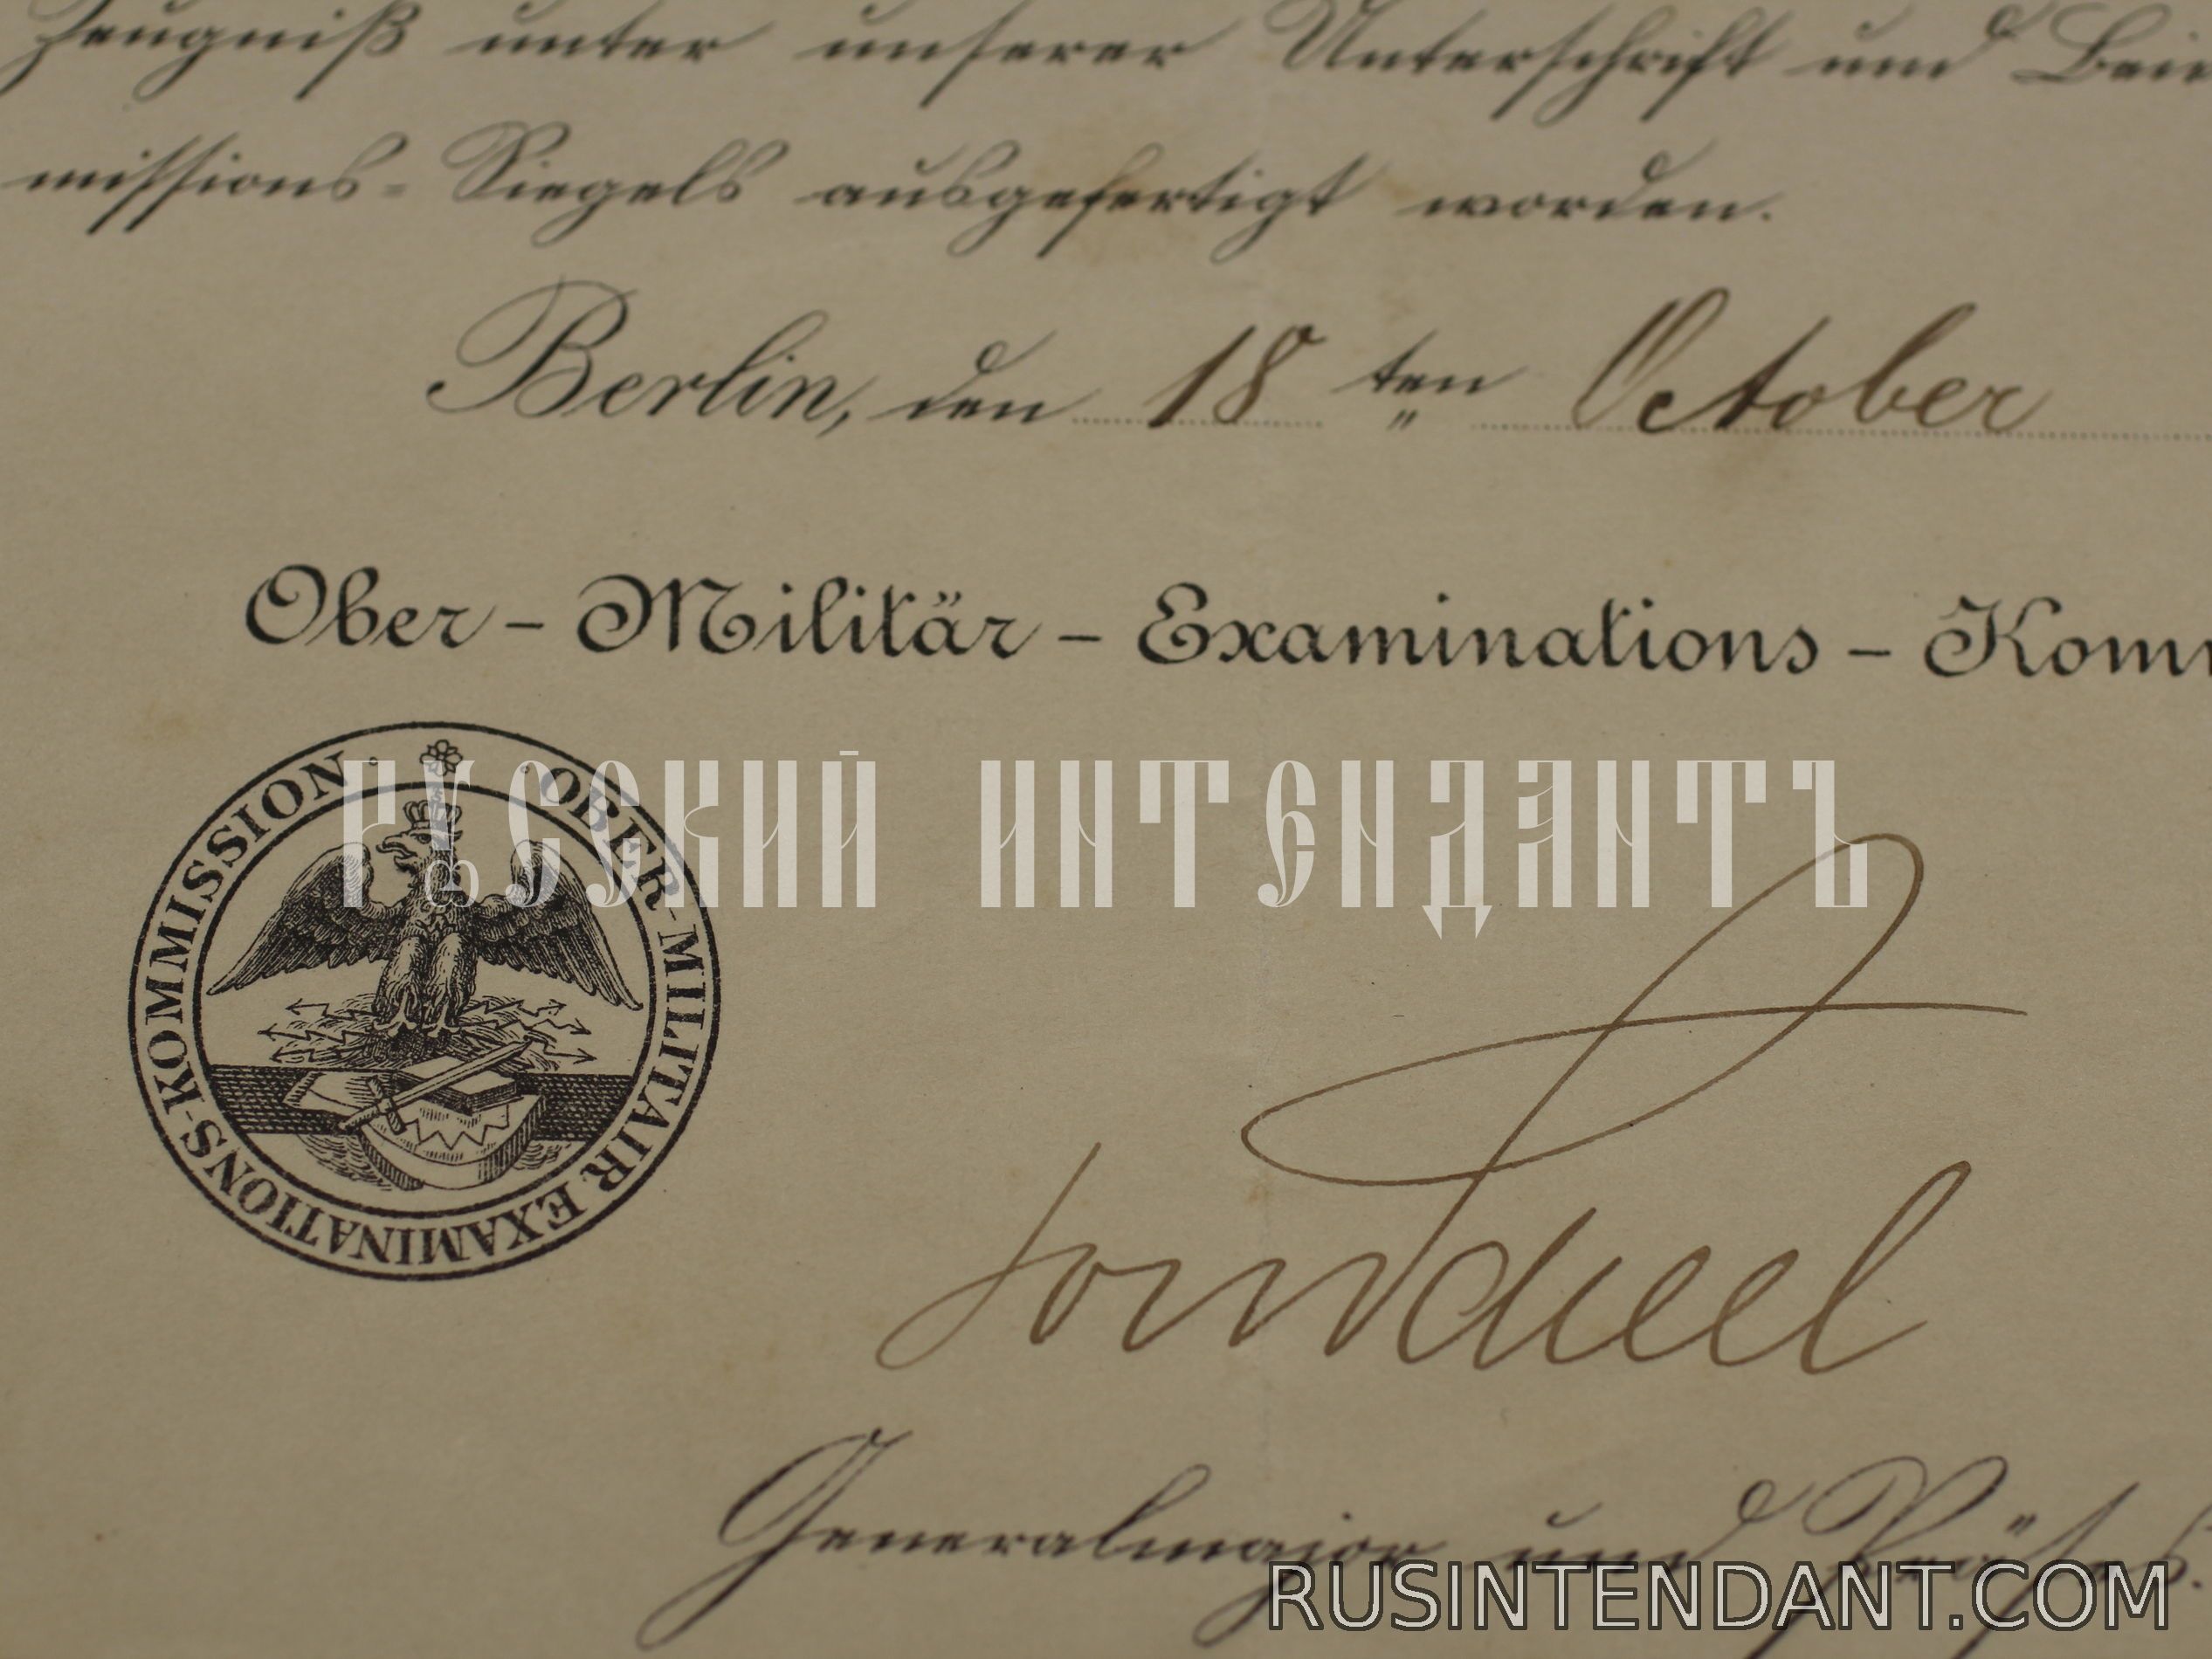 Zeugniß unter unserer Unterschrift und Bei
missions-Siegels ausgefertigt worden.
Berlin, den 18 ten October
Ober-Militär-Examinations-Kom
OBER-MILITAIR EXAMINATIONS-KOMMISSION
РУССКИЙ ИНТЕНДАНТЪ
Generalmajor und Präses.
RUSINTENDANT.COM